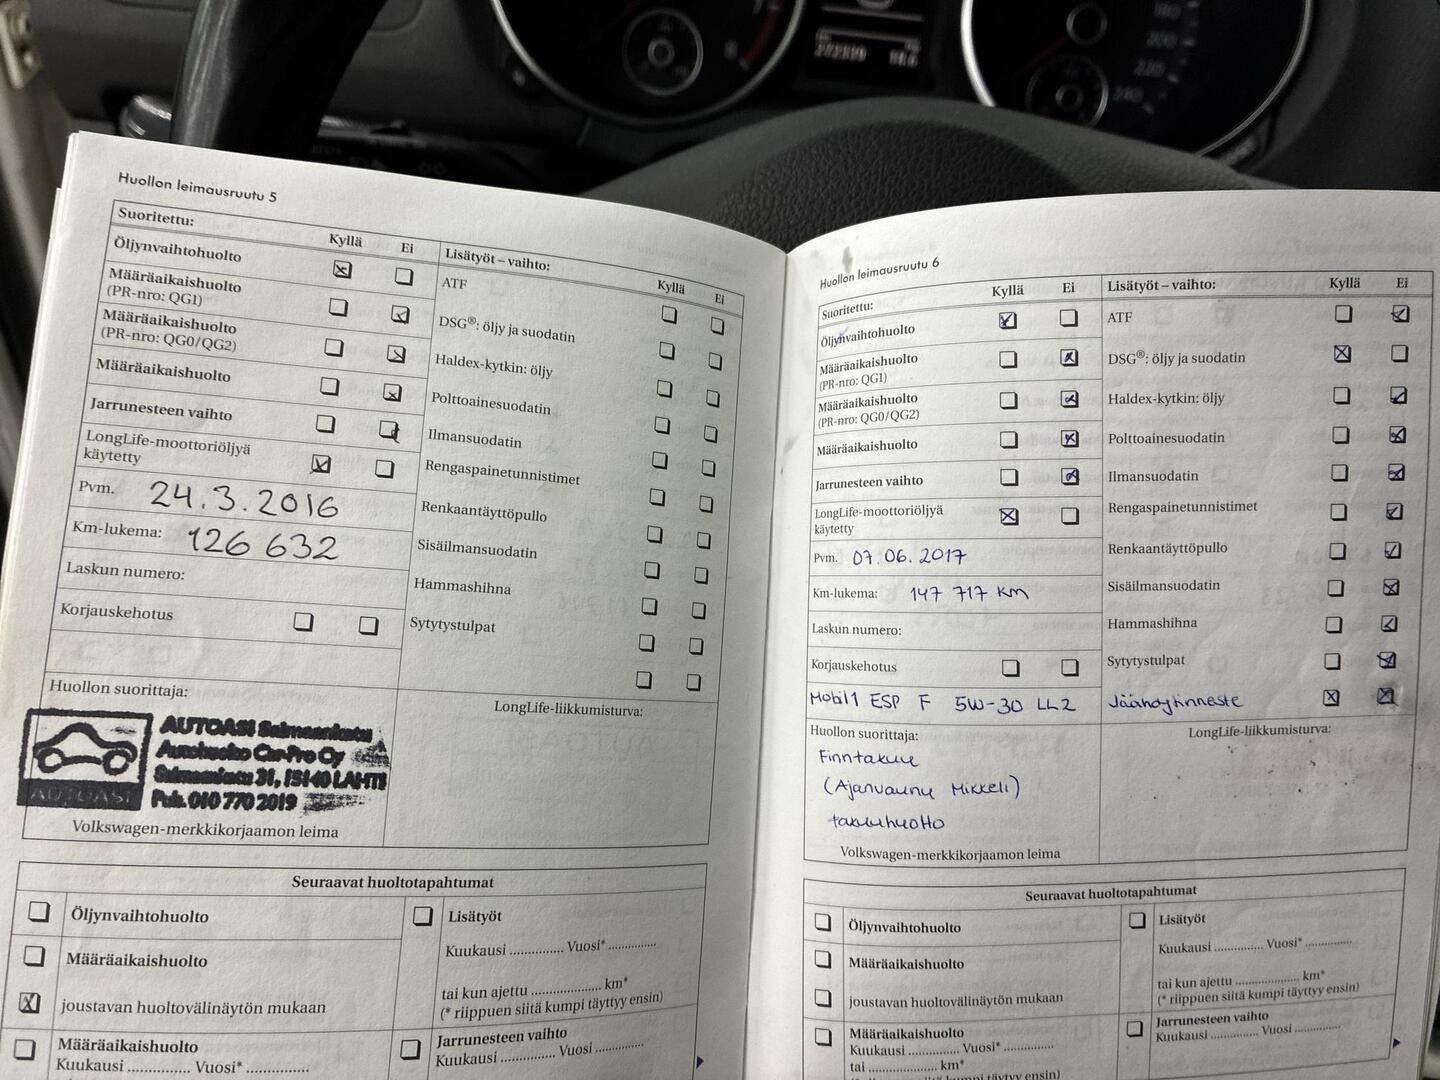 Huollon leimausruutu 5
Suoritettu:
Kyllä Ei
Öljynvaihtohuolto
Määräaikaishuolto
(PR-nro: QG1)
Määräaikaishuolto
(PR-nro: QG0/QG2)
Määräaikaishuolto
Jarrunesteen vaihto
LongLife-moottoriöljyä
käytetty
Pvm. 24.3.2016
Km-lukema: 126 632
Laskun numero:
Korjauskehotus
Huollon suorittaja:
AUTOASI Salmaankatu
Autohuolto Car-Pro Oy
31, 15140 LAHTI
Puh. 010 770 2019
AUTOASI
Volkswagen-merkkikorjaamon leima
Lisätyöt – vaihto:
Kyllä Ei
ATF
DSG®: öljy ja suodatin
Haldex-kytkin: öljy
Polttoainesuodatin
Ilmansuodatin
Rengaspainetunnistimet
Renkaantäyttöpullo
Sisäilmansuodatin
Hammashihna
Sytytystulpat
LongLife-liikkumisturva:
Seuraavat huoltotapahtumat
Öljynvaihtohuolto
Määräaikaishuolto
joustavan huoltovälinäytön mukaan
Määräaikaishuolto
Kuukausi ............. Vuosi* ...............
Lisätyöt
Kuukausi ............. Vuosi* ..............
tai kun ajettu .................... km*
(* riippuen siitä kumpi täyttyy ensin)
Jarrunesteen vaihto
Kuukausi ............. Vuosi ..............
Huollon leimausruutu 6
Suoritettu:
Kyllä Ei
Öljynvaihtohuolto
Määräaikaishuolto
(PR-nro: QG1)
Määräaikaishuolto
(PR-nro: QG0/QG2)
Määräaikaishuolto
Jarrunesteen vaihto
LongLife-moottoriöljyä
käytetty
Pvm. 07.06.2017
Km-lukema: 147 717 km
Laskun numero:
Korjauskehotus
Mobil1 ESP F 5W-30 LL2
Huollon suorittaja:
Finntakuu
(Ajanvaunu Mikkeli)
takuuhuolto
Volkswagen-merkkikorjaamon leima
Lisätyöt – vaihto:
Kyllä Ei
ATF
DSG®: öljy ja suodatin
Haldex-kytkin: öljy
Polttoainesuodatin
Ilmansuodatin
Rengaspainetunnistimet
Renkaantäyttöpullo
Sisäilmansuodatin
Hammashihna
Sytytystulpat
Jäähdytinneste
LongLife-liikkumisturva:
Seuraavat huoltotapahtumat
Öljynvaihtohuolto
Määräaikaishuolto
joustavan huoltovälinäytön mukaan
Määräaikaishuolto
Kuukausi ............. Vuosi* ..............
tai .................... km*
Lisätyöt
Kuukausi ............. Vuosi* ..............
tai kun ajettu .................... km*
(* riippuen siitä kumpi täyttyy ensin)
Jarrunesteen vaihto
Kuukausi ............. Vuosi ..............
180
200
220
240